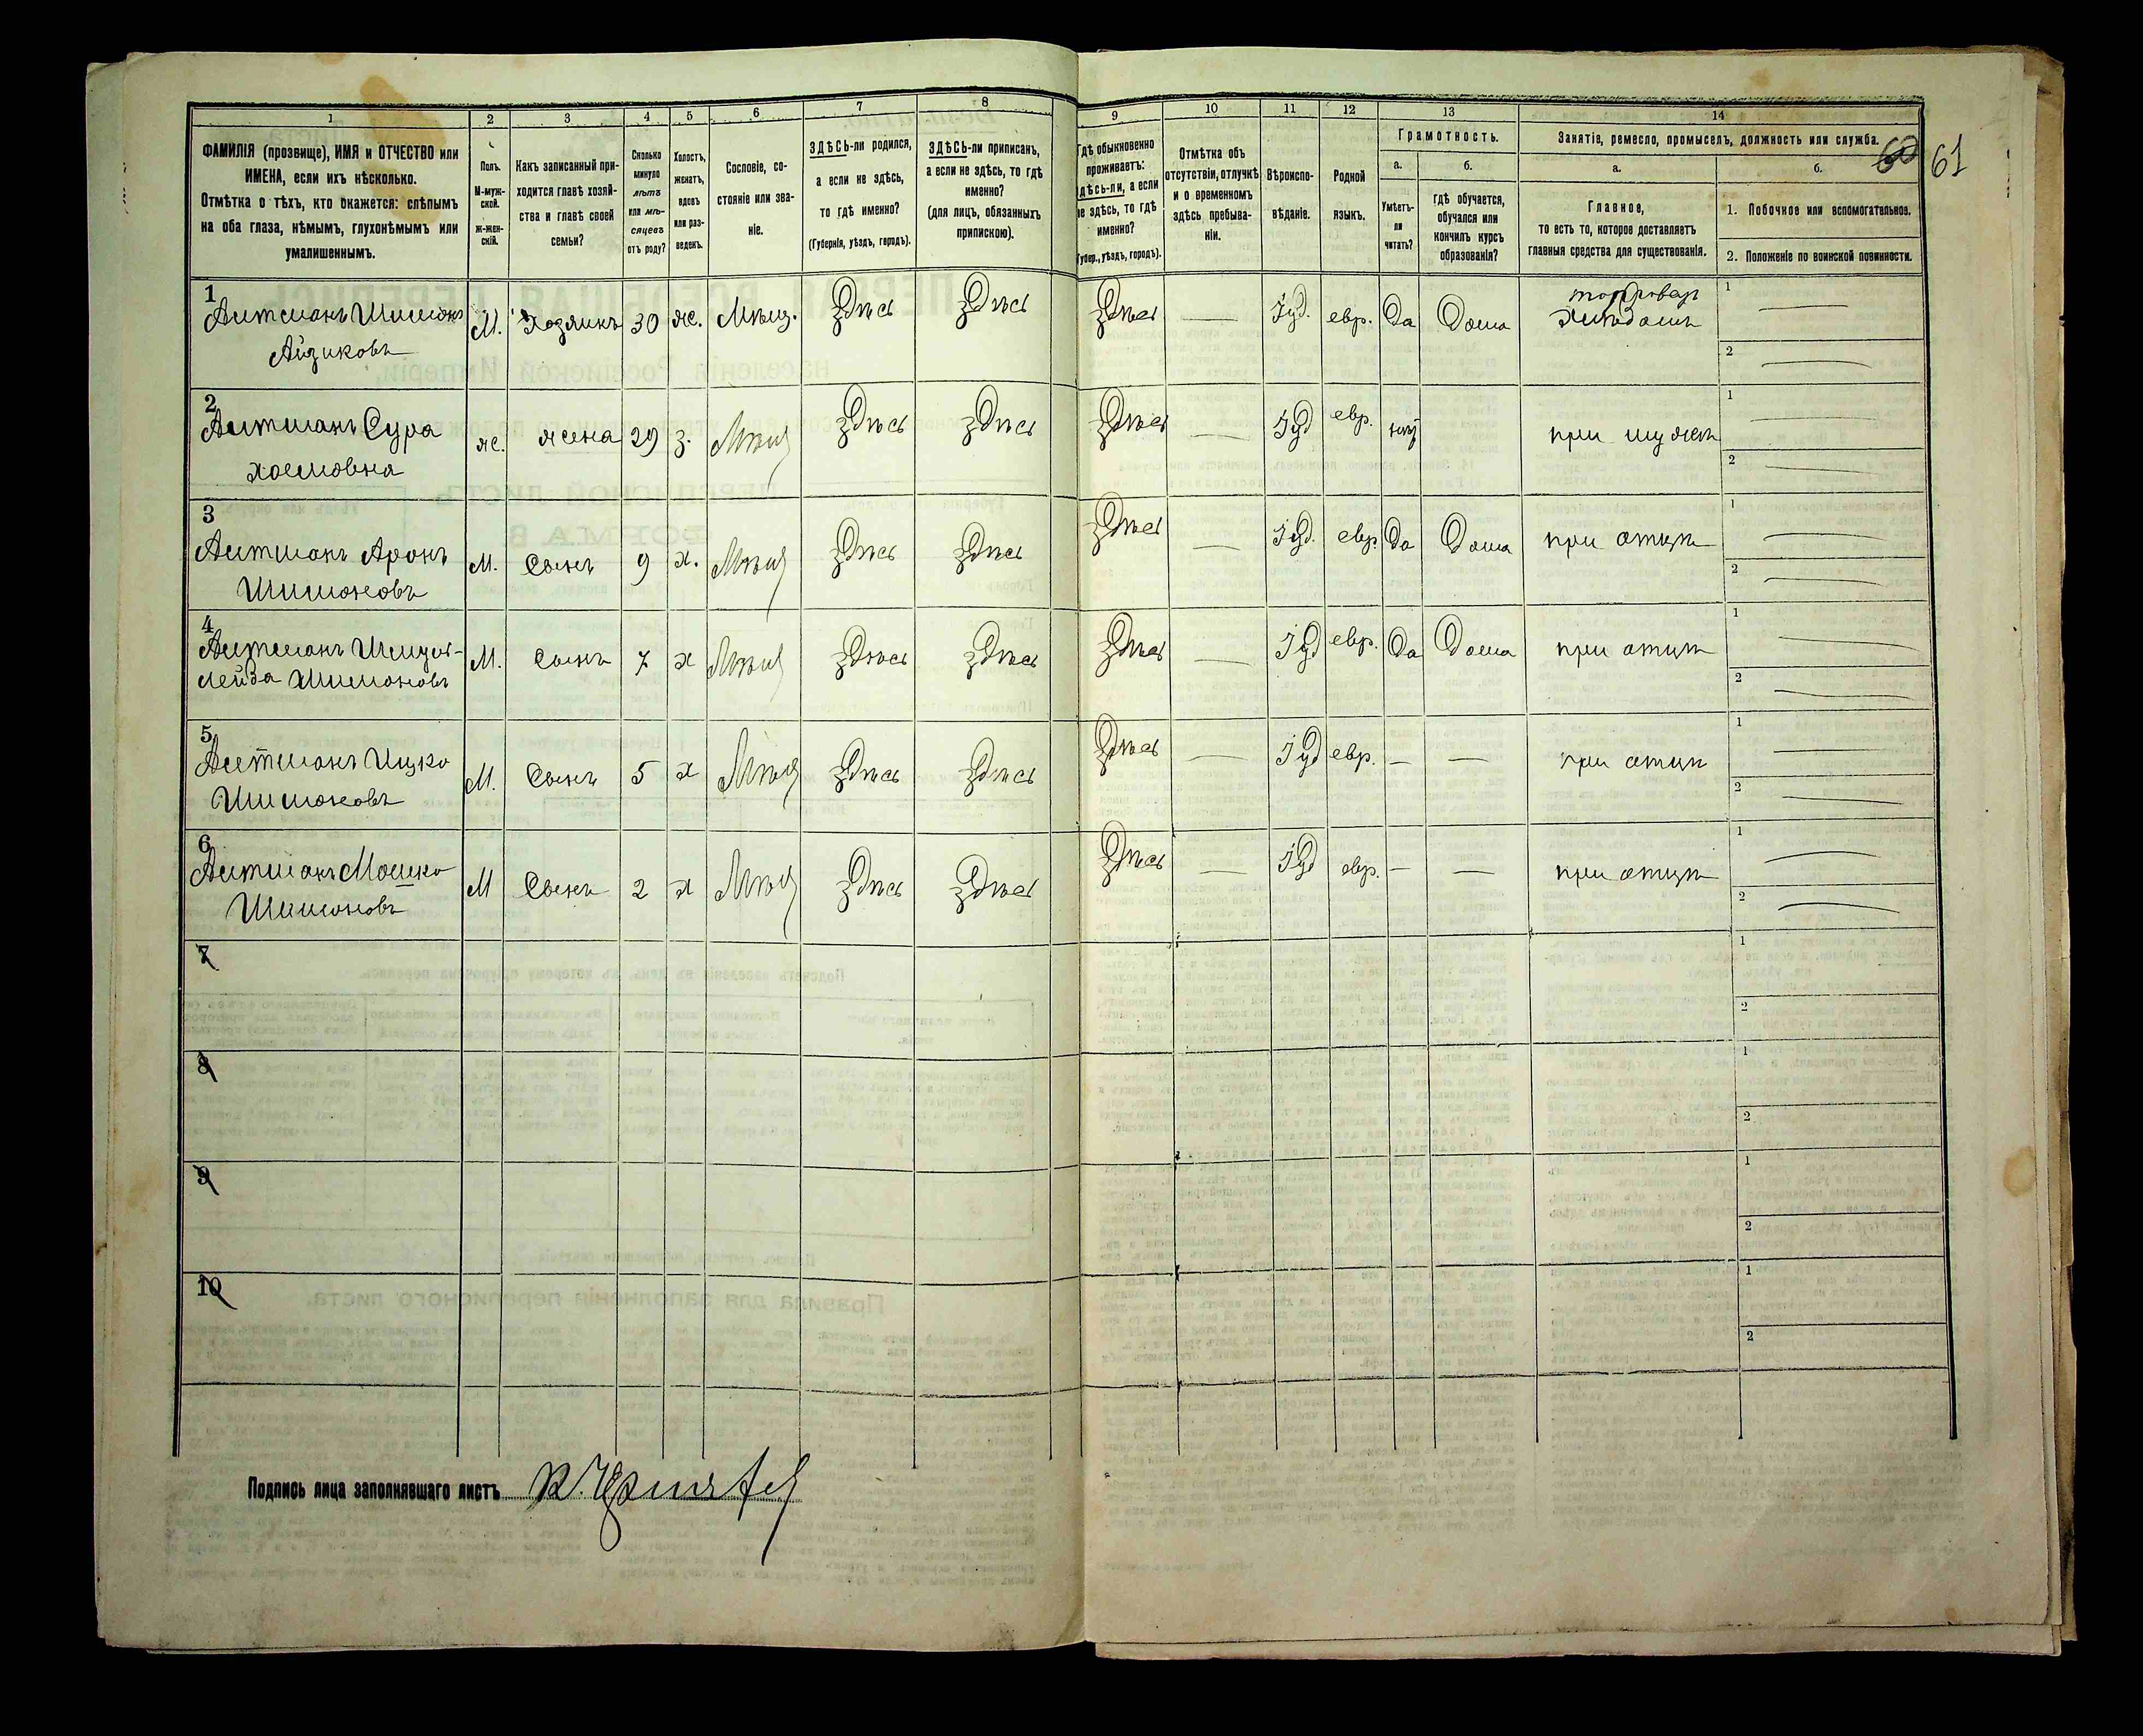 1 2 3 4 5 6 7 8
ФАМИЛІЯ (прозвище), ИМЯ и ОТЧЕСТВО или
ИМЕНА, если ихъ нѣсколько.
Отмѣтка о тѣхъ, кто окажется: слѣпымъ
на оба глаза, нѣмымъ, глухонѣмымъ или
умалишеннымъ.
Полъ.
М-муж-
ской.
ж-жен-
скій.
Какъ записанный при-
ходится главѣ хозяй-
ства и главѣ своей
семьи?
Сколько
минуло
лѣтъ
или мѣ-
сяцевъ
отъ роду?
Холостъ,
женатъ,
вдовъ
или раз-
веденъ.
Сословіе, со-
стояніе или зва-
ніе.
ЗДѢСЬ-ли родился,
а если не здѣсь,
то гдѣ именно?
(Губернія, уѣздъ, городъ).
ЗДѢСЬ-ли приписанъ,
а если не здѣсь, то гдѣ
именно?
(для лицъ, обязанныхъ
припискою).
9 10 11 12 13 14
Гдѣ обыкновенно
проживаетъ:
здѣсь-ли, а если
не здѣсь, то гдѣ
именно?
(Губер., уѣздъ, городъ).
Отмѣтка объ
отсутствіи, отлучкѣ
и о временномъ
здѣсь пребыва-
ніи.
Вѣроиспо-
вѣданіе.
Родной
языкъ.
Грамотность.
а.
Умѣетъ-
ли
читать?
б.
гдѣ обучается,
обучался или
кончилъ курсъ
образованія?
Занятіе, ремесло, промыселъ, должность или служба.
60 61
а.
Главное,
то есть то, которое доставляетъ
главныя средства для существованія.
б.
1. Побочное или вспомогательное.
2. Положеніе по воинской повинности.
1
Аитманъ Шимонъ
Айзиковъ
М. Хозяинъ 30 ж. Мѣщ. Здѣсь Здѣсь Здѣсь — Іуд. евр. Да Дома
1 —
2 —
2
Аитманъ Сура
ж. жена 29 з. Мѣщ Здѣсь Здѣсь Здѣсь — Іуд евр. нѣт при мужѣ
1 —
2 —
3
Аитманъ Аронъ
Шимоновъ
М. Сынъ 9 х. Мѣщ Здѣсь Здѣсь Здѣсь — Іуд. евр. Да Дома при отцѣ
1 —
2 —
4
лейба Шимоновъ
М. Сынъ 7 х Мѣщ Здѣсь Здѣсь Здѣсь — Іуд евр. Да Дома при отцѣ
1 —
2 —
5
Аитманъ Ицко
Шимоновъ
М. Сынъ 5 х Мѣщ Здѣсь Здѣсь Здѣсь — Іуд евр. — — при отцѣ
1 —
2 —
6
Аитманъ Мошко
Шимоновъ
М Сынъ 2 х Мѣщ Здѣсь Здѣсь Здѣсь — Іуд евр. — — при отцѣ
1 —
2 —
7
1
2
8
1
2
9
1
2
10
1
2
Подпись лица заполнявшаго листъ